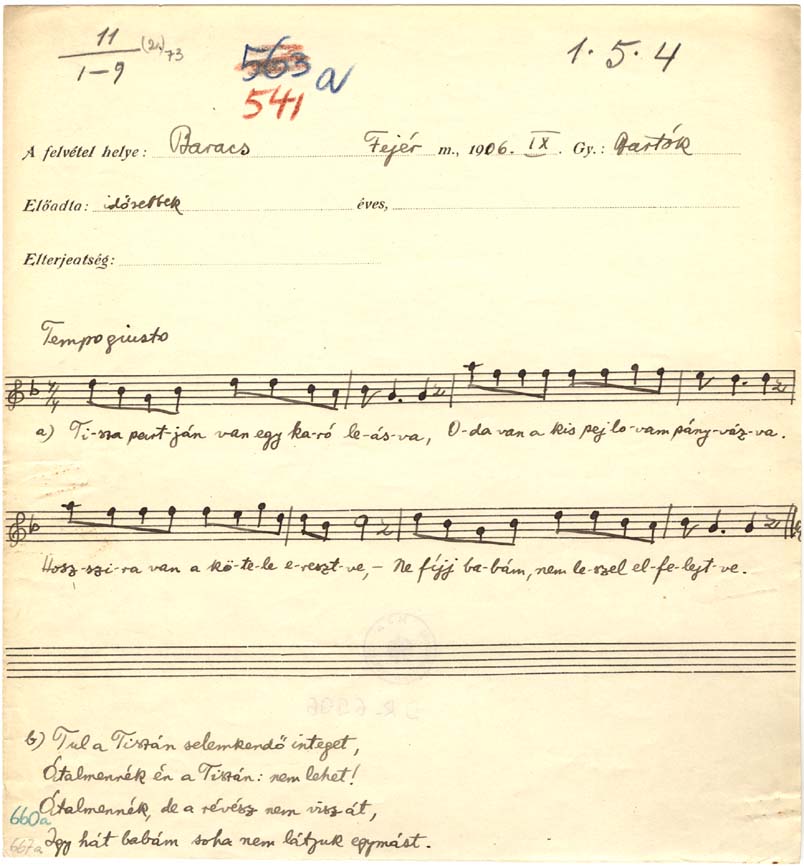 11 (2.) 73
1-9
563 a
541
1. 5. 4
A felvétel helye: Baracs Fejér m., 1906. IX. Gy.: Bartók
Előadta: idősebbek éves,
Elterjedtség:
Tempo giusto
a) Ti-sza part-ján van egy ka-ró le-ás-va, O-da van a kis pej lo-vam pány-váz-va.
Hosz-szi-ra van a kö-te-le e-reszt-ve, - Ne fíjj ba-bám, nem le-szel el-fe-lejt-ve.
b) Tul a Tiszán selemkendő integet,
Átalmennék én a Tiszán: nem lehet!
Átalmennék, de a révész nem visz át,
660a Igy hát babám soha nem látjuk egymást.
667a